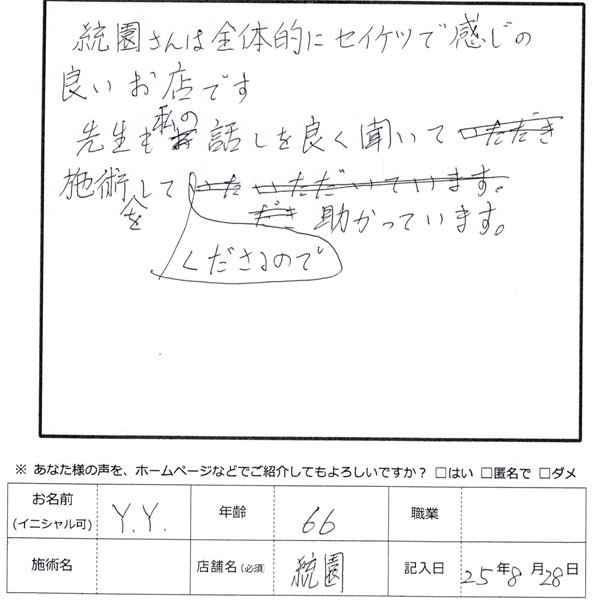 統園さんは全体的にセイケツで感じの
良いお店です
先生も私の話しを良く聞いて
施術をして
くださるので
助かっています。
※ あなた様の声を、ホームページなどでご紹介してもよろしいですか？ □はい □匿名で □ダメ
お名前 (イニシャル可) Y.Y. 年齢 66 職業
施術名 店舗名(必須) 統園 記入日 25年8月28日